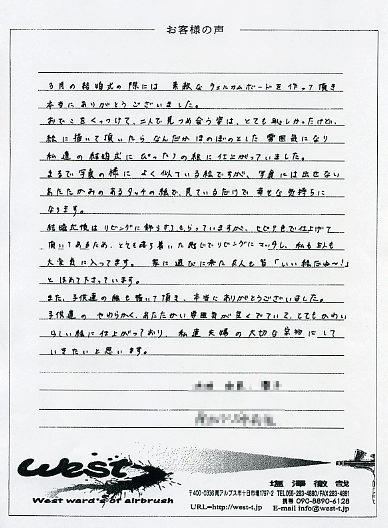 お客様の声
3月の結婚式の際には 素敵なウェルカムボードを作って頂き
本当にありがとうございました。
おでこをくっつけて、二人で見つめ合う姿は、とても恥しかったけど、
絵に描いて頂いたら なんだか ほのぼのとした 雰囲気になり
私達の結婚式に ぴったりの絵に仕上がっていました。
まるで写真の様に よく似ている絵ですが、写真には出せない
あたたかみのあるタッチの絵で、見ているだけで 幸せな気持ちに
なります。
結婚式後は リビングに飾らせてもらっていますが、セピア色で仕上げて
頂いてあるため、とても落ち着いた感じでリビングにマッチし、私も主人も
大変気に入ってます。 家に遊びに来た友人も皆「いい絵だね〜!」
とほめて下さっています。
また、子供達の絵も描いて頂き、本当にありがとうございました。
子供達の やわらかく、あたたかい雰囲気が 良くでていて、とてもかわい
らしい絵に仕上がっており、私達夫婦の大切な宝物にして
いきたいと思います。
West
West ward of airbrush
塩澤 徹哉
〒400-0336 南アルプス市十日市場1797-2 TEL055-283-4880/FAX283-4881
携帯 090-8890-6128
URL=http://west-t.jp E-mail info@west-t.jp